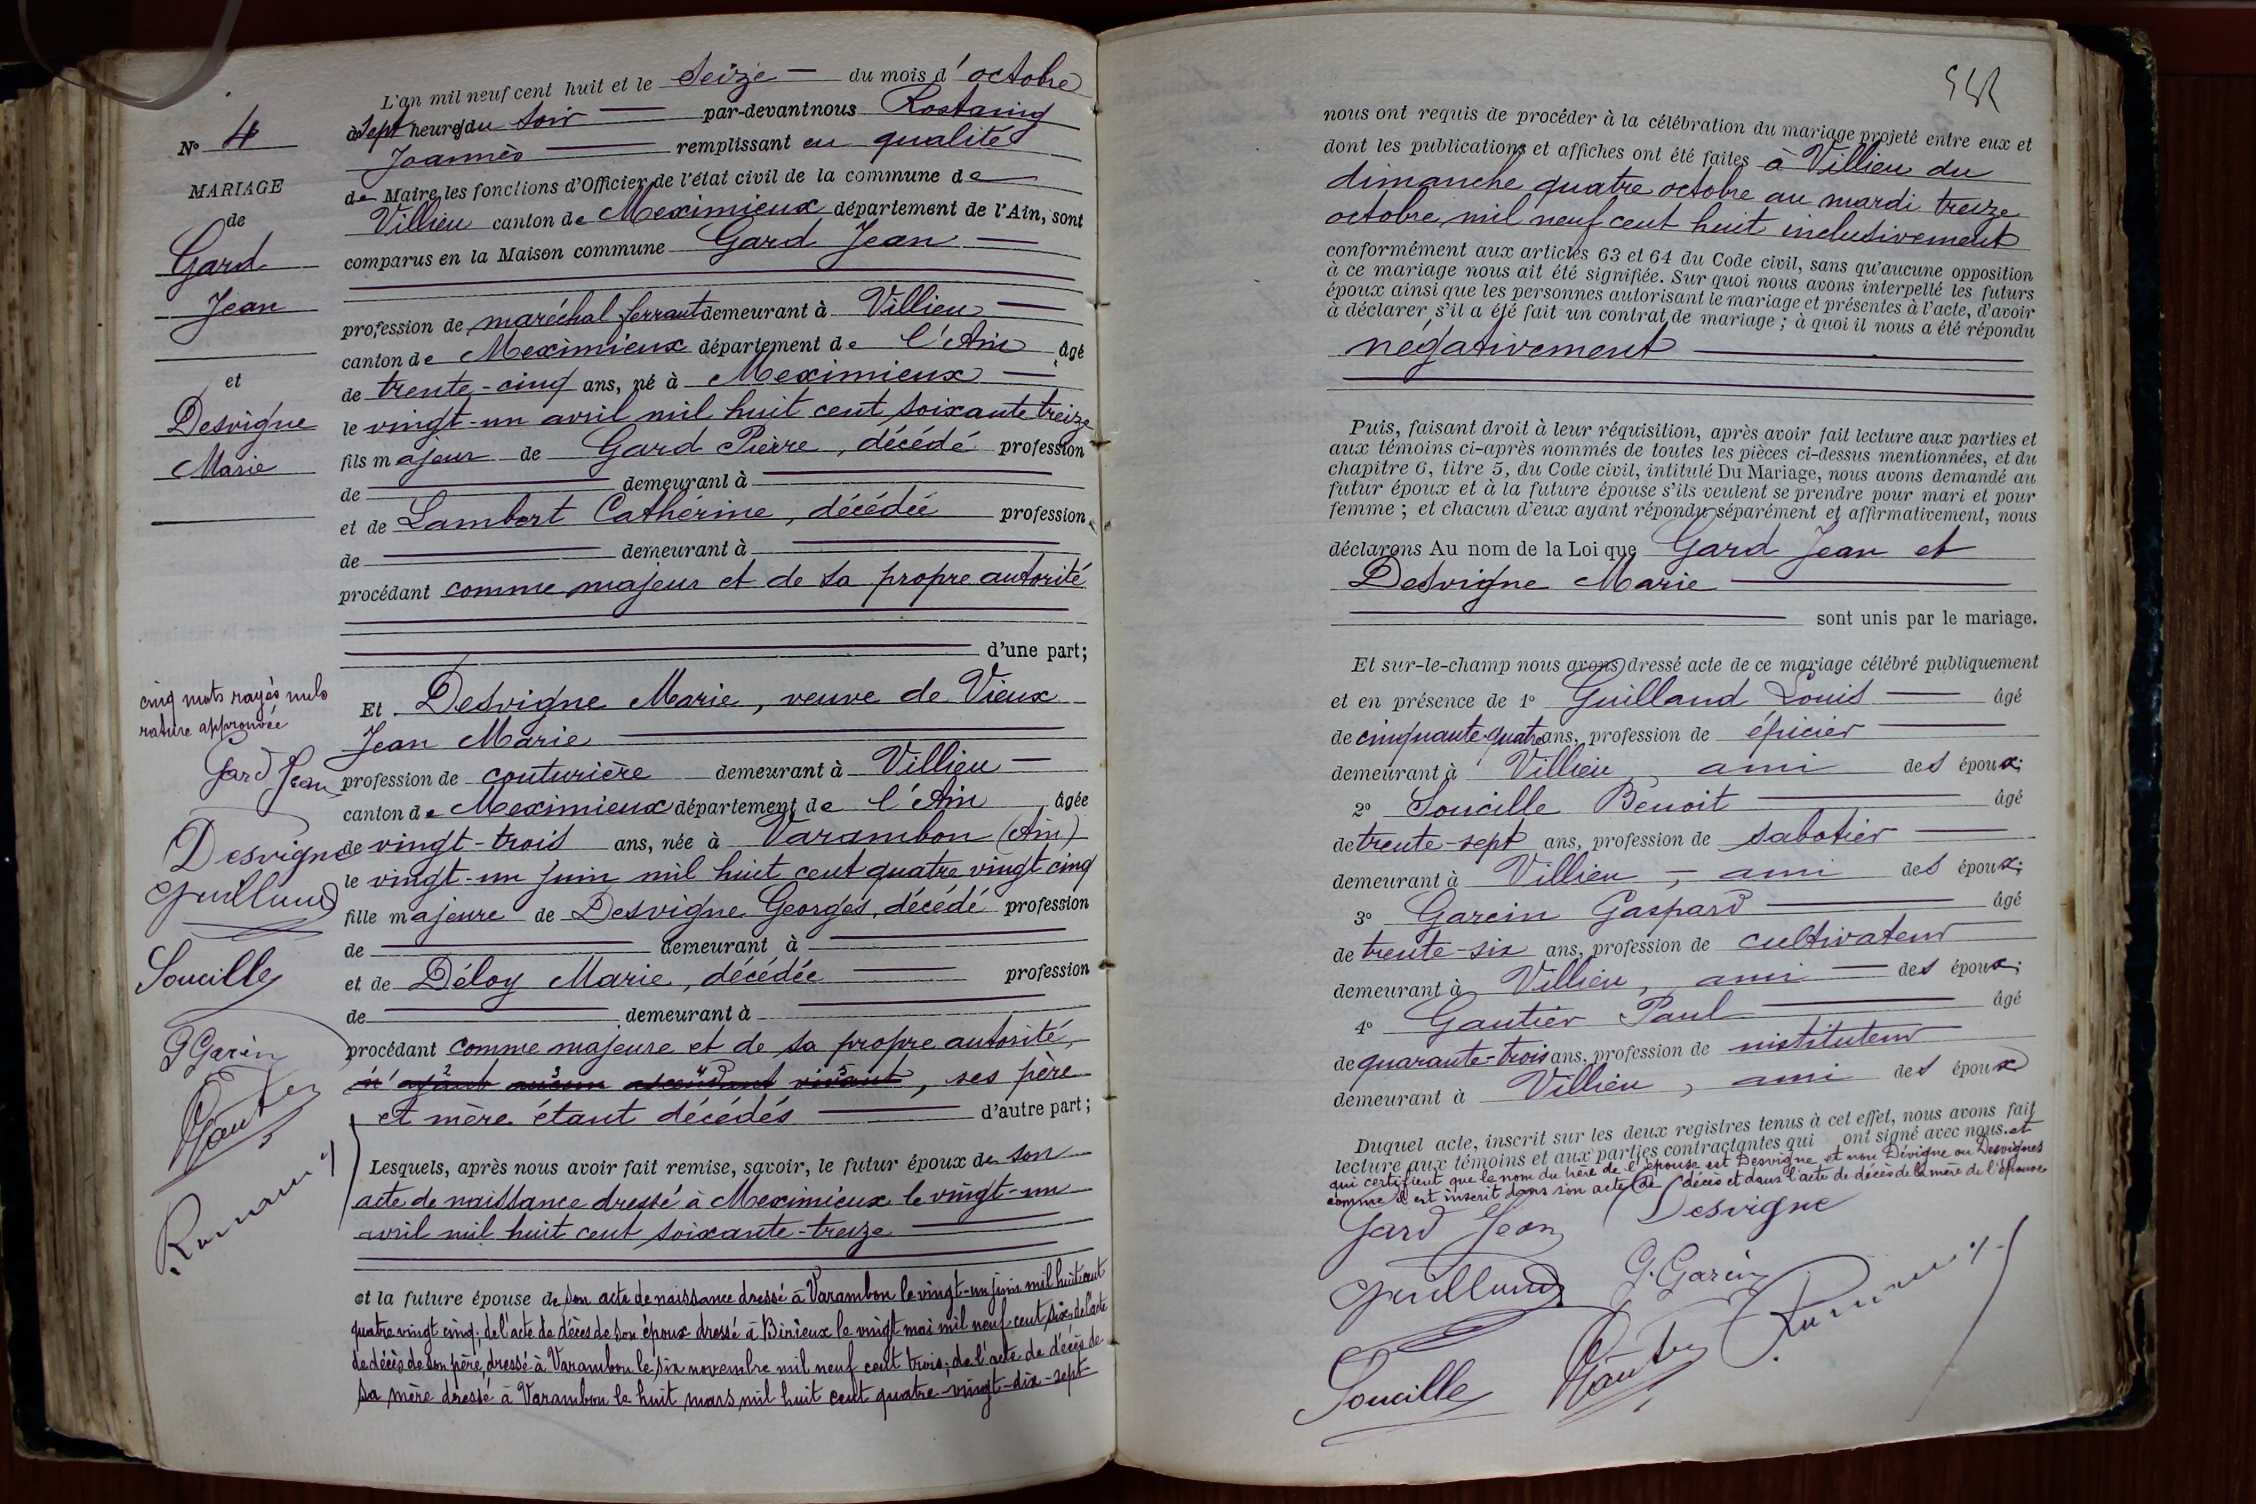 L'an mil neuf cent huit et le seize du mois d'octobre
à sept heures du soir par-devant nous Rostaing
Joannès remplissant en qualité
de Maire les fonctions d'Officier de l'état civil de la commune de
Villieu canton de Meximieux département de l'Ain, sont
comparus en la Maison commune Gard Jean
profession de maréchal ferrant demeurant à Villieu
canton de Meximieux département de l'Ain âgé
de trente-cinq ans, né à Meximieux
le vingt-un avril mil huit cent soixante treize
fils majeur de Gard Pierre, décédé profession
de demeurant à
et de Lambert Cathérine, décédée profession
de demeurant à
procédant comme majeur et de sa propre autorité
d'une part;
Et Desvigne Marie, veuve de Vieux
Jean Marie
profession de couturière demeurant à Villieu
canton de Meximieux département de l'Ain âgée
de vingt-trois ans, née à Varambon (Ain)
le vingt-un juin mil huit cent quatre vingt cinq
fille majeure de Desvigne Georges, décédé profession
de demeurant à
et de Déloy Marie, décédée profession
de demeurant à
procédant comme majeure et de sa propre autorité,
n'ayant aucun ascendant vivant, ses père
et mère étant décédés d'autre part;
Lesquels, après nous avoir fait remise, savoir, le futur époux de son
acte de naissance dressé à Meximieux le vingt-un
avril mil huit cent soixante-treize
et la future épouse de son acte de naissance dressé à Varambon le vingt-un juin mil huit cent
quatre vingt cinq; de l'acte de décès de son époux dressé à Birieux le vingt mai mil neuf cent six, de l'acte
de décès de son père, dressé à Varambon le six novembre mil neuf cent trois; de l'acte de décès de
sa mère dressé à Varambon le huit mars mil huit cent quatre-vingt-dix-sept
N° 4
MARIAGE
de
Gard
Jean
et
Desvigne
Marie
cinq mots rayés nuls
rature approuvée
Gard Jean
Desvigne
Guilland
Soucille
G Garcin
Gautier
nous ont requis de procéder à la célébration du mariage projeté entre eux et
dont les publications et affiches ont été faites à Villieu du
dimanche quatre octobre au mardi treize
octobre mil neuf cent huit inclusivement
conformément aux articles 63 et 64 du Code civil, sans qu'aucune opposition
à ce mariage nous ait été signifiée. Sur quoi nous avons interpellé les futurs
époux ainsi que les personnes autorisant le mariage et présentes à l'acte, d'avoir
à déclarer s'il a été fait un contrat de mariage; à quoi il nous a été répondu
négativement
Puis, faisant droit à leur réquisition, après avoir fait lecture aux parties et
aux témoins ci-après nommés de toutes les pièces ci-dessus mentionnées, et du
chapitre 6, titre 5, du Code civil, intitulé Du Mariage, nous avons demandé au
futur époux et à la future épouse s'ils veulent se prendre pour mari et pour
femme; et chacun d'eux ayant répondu séparément et affirmativement, nous
déclarons Au nom de la Loi que Gard Jean et
Desvigne Marie
sont unis par le mariage.
Et sur-le-champ nous avons dressé acte de ce mariage célébré publiquement
et en présence de 1° Guilland Louis âgé
de cinquante-quatre ans, profession de épicier
demeurant à Villieu, ami des époux;
2° Soucille Benoit âgé
de trente-sept ans, profession de sabotier
demeurant à Villieu, ami des époux;
3° Garcin Gaspard âgé
de trente-six ans, profession de cultivateur
demeurant à Villieu, ami des époux;
4° Gautier Paul âgé
de quarante-trois ans, profession de instituteur
demeurant à Villieu, ami des époux
Duquel acte, inscrit sur les deux registres tenus à cet effet, nous avons fait
lecture aux témoins et aux parties contractantes qui ont signé avec nous. et
qui certifient que le nom du père de l'épouse est Desvigne et non Dévigne ou Desvignes
comme il est inscrit dans son acte de décès et dans l'acte de décès de la mère de l'épouse
Gard Jean Desvigne
Guilland G. Garcin
Soucille Gautier